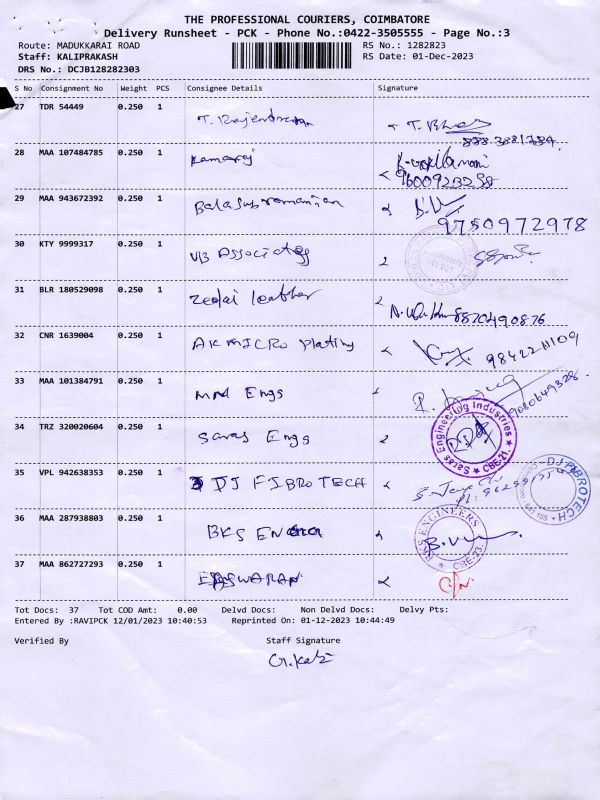 THE PROFESSIONAL COURIERS, COIMBATORE
Delivery Runsheet - PCK - Phone No.:0422-3505555 - Page No.:3
Route: MADUKKARAI ROAD RS No.: 1282823
Staff: KALIPRAKASH RS Date: 01-Dec-2023
DRS No.: DCJB128282303
S No Consignment No Weight PCS Consignee Details Signature
27 TDR 54449 0.250 1 T. Rajendran
28 MAA 107484785 0.250 1 Kamaraj
9600923258
29 MAA 943672392 0.250 1 Balasubramanian
9750972978
30 KTY 9999317 0.250 1 VB Associates
31 BLR 180529098 0.250 1 leather
8870490876
32 CNR 1639004 0.250 1 AK MICRO Plating
33 MAA 101384791 0.250 1 MM Engs
34 TRZ 320020604 0.250 1 Saras Engg
Saras Engineering Industries ★ CBE-21. ★
35 VPL 942638353 0.250 1 DJ FIBROTECH
DJ FIBROTECH
36 MAA 287938803 0.250 1 BKS
BKS ENGINEERS CBE-23.
37 MAA 862727293 0.250 1 ESWARAN
Tot Docs: 37 Tot COD Amt: 0.00 Delvd Docs: Non Delvd Docs: Delvy Pts:
Entered By :RAVIPCK 12/01/2023 10:40:53 Reprinted On: 01-12-2023 10:44:49
Verified By Staff Signature